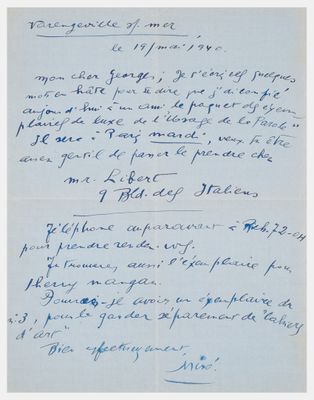 Varengeville s/ mer
le 19/mai/1940.
mon cher Georges, Je t'écris ces quelques
mots en hâte pour te dire que j'ai confié
aujourd'hui à un ami le paquet des exem-
plaires de luxe de l'"Usage de la Parole"
Il sera à Paris mardi, veux tu être
assez gentil de passer le prendre chez
mr. Libert
9 Bld. des Italiens
Téléphone auparavant à Rich. 72-04
pour prendre rendez-vous.
Tu trouveras aussi l'exemplaire pour
Sherry Mangan.
Pourrais-je avoir un exemplaire du
nº3, pour le garder séparement de "Cahiers
d'art"
Bien affectueusement
Miró.